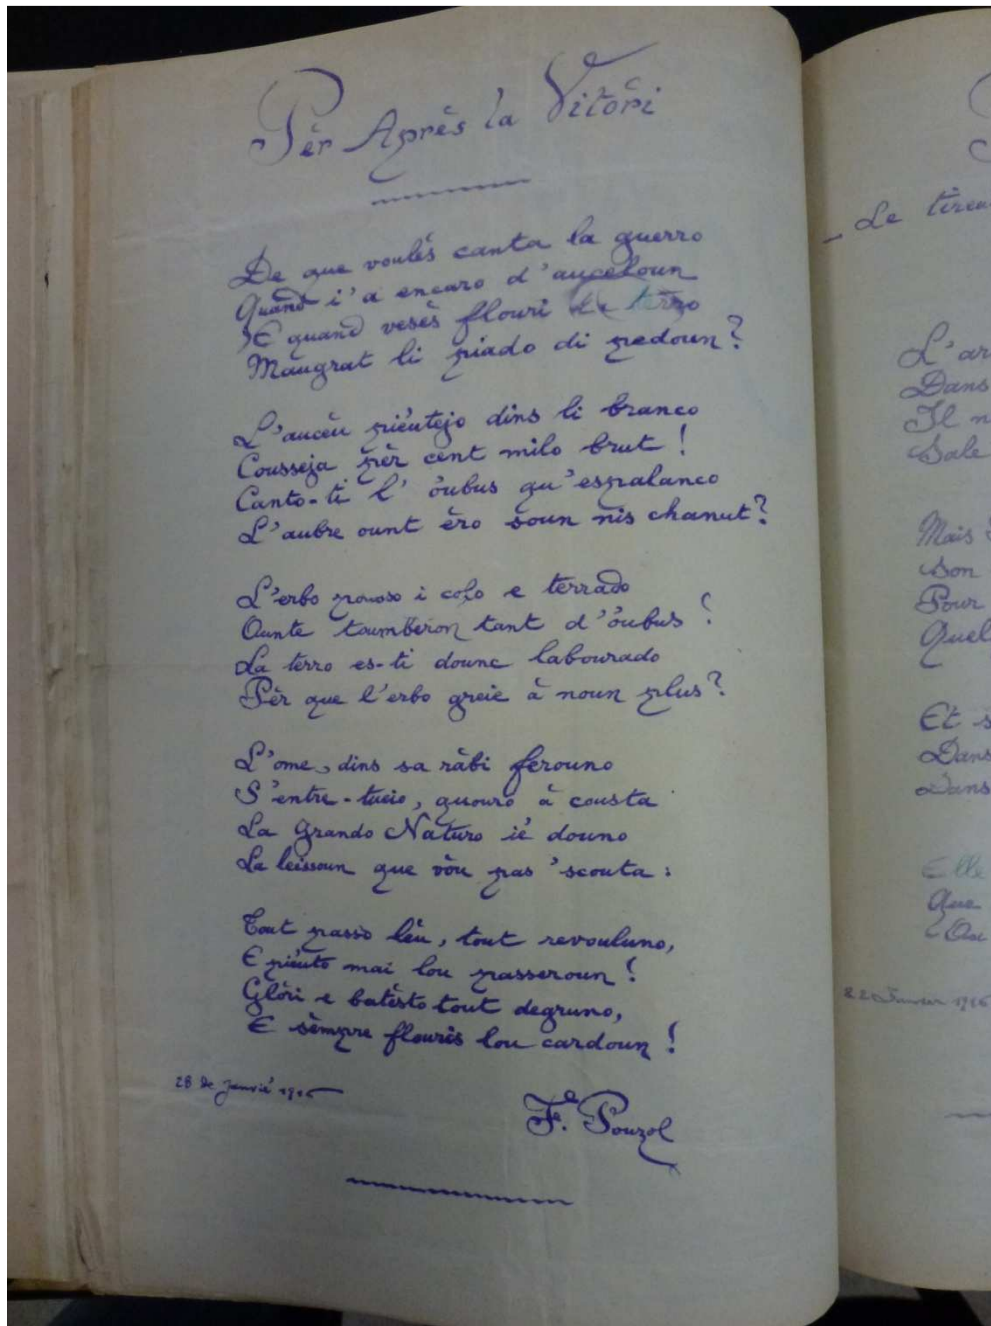 Pèr Après la Vitòri
De que voulès canta la guerro
Quand i'a encaro d'auceloun
E quand vesès flouri la terro
Maugrat li piado di pedoun?
L'aucèu piéutejo dins li branco
Cousseja pèr cent milo brut!
Canto-ti l'óubus qu'espalanco
L'aubre ount èro soun nis chanut?
L'erbo pousso i colo e terrado
Ounte toumbèron tant d'óubus!
La terro es-ti dounc labourado
Pèr que l'erbo greie à noun plus?
L'ome, dins sa ràbi ferouno
S'entre-tueio, quouro à cousta
La Grando Naturo ié douno
La leissoun que vòu pas 'scouta:
Tout passo lèu, tout revouluno,
E piéuto mai lou passeroun!
Glòri e batèsto tout degruno,
E sèmpre flouris lou cardoun!
28 de Janvié 1916
F. Pouzol
_ Le
L'ar
Dans
Il n
Sale
Mais
Son
Pour
Quel
Et s
Dans
Dans
Elle
Que
Ou
22 Janvier 1916